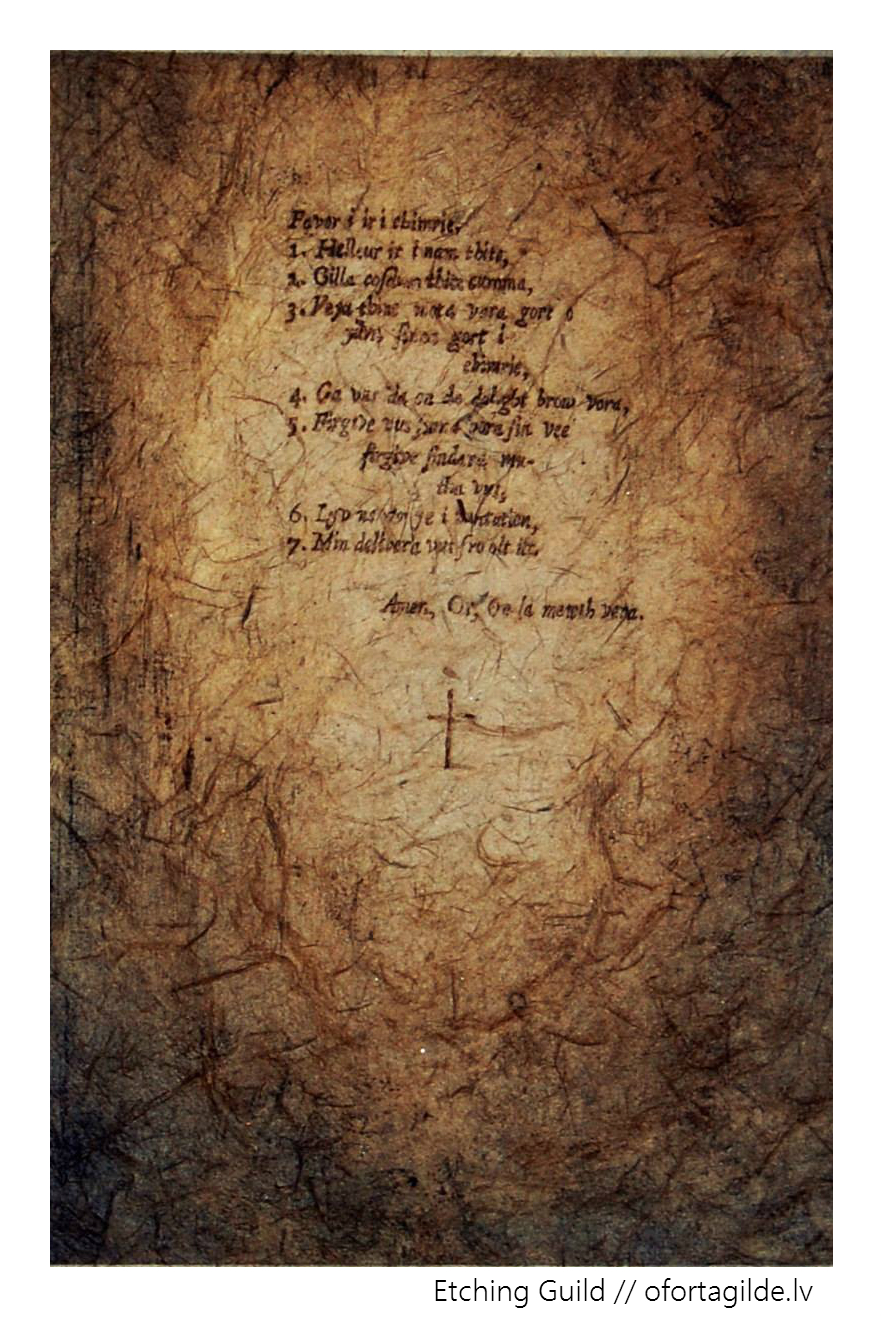 Favor i ir i chimrie,
1. Helleur ir i nam thite,
2. Gilla cosdum thite cumma,
3. Veya thine mota vara gort o
yurn sinna gort i
chimrie,
4. Ga vus da on da dalight brow vora,
5. Firgive vus sinna vora sin vee
firgive sindara mu-
tha vus,
6. Lyv vus ye i tumtation,
7. Min delivera vus fro olt ilt,
Amen, Or, On la meteth vera.
Etching Guild // ofortagilde.lv